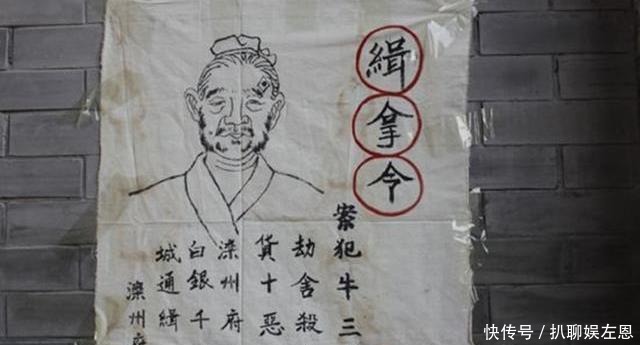 緝拿令
案犯牛三
劫舍殺
貨十惡
滦州府
白銀千
城通緝
滦州府
快传号/扒聊娱左恩